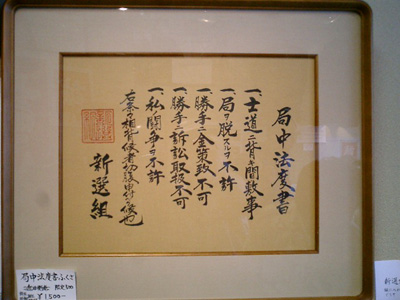 局中法度書
一、士道ニ背キ間敷事
一、局ヲ脱スルヲ不許
一、勝手ニ金策致不可
一、勝手ニ訴訟取扱不可
一、私ノ闘争ヲ不許
右条々相背候者切腹申付ベク候也
新選組
局中法度書ふくさ
¥1500-